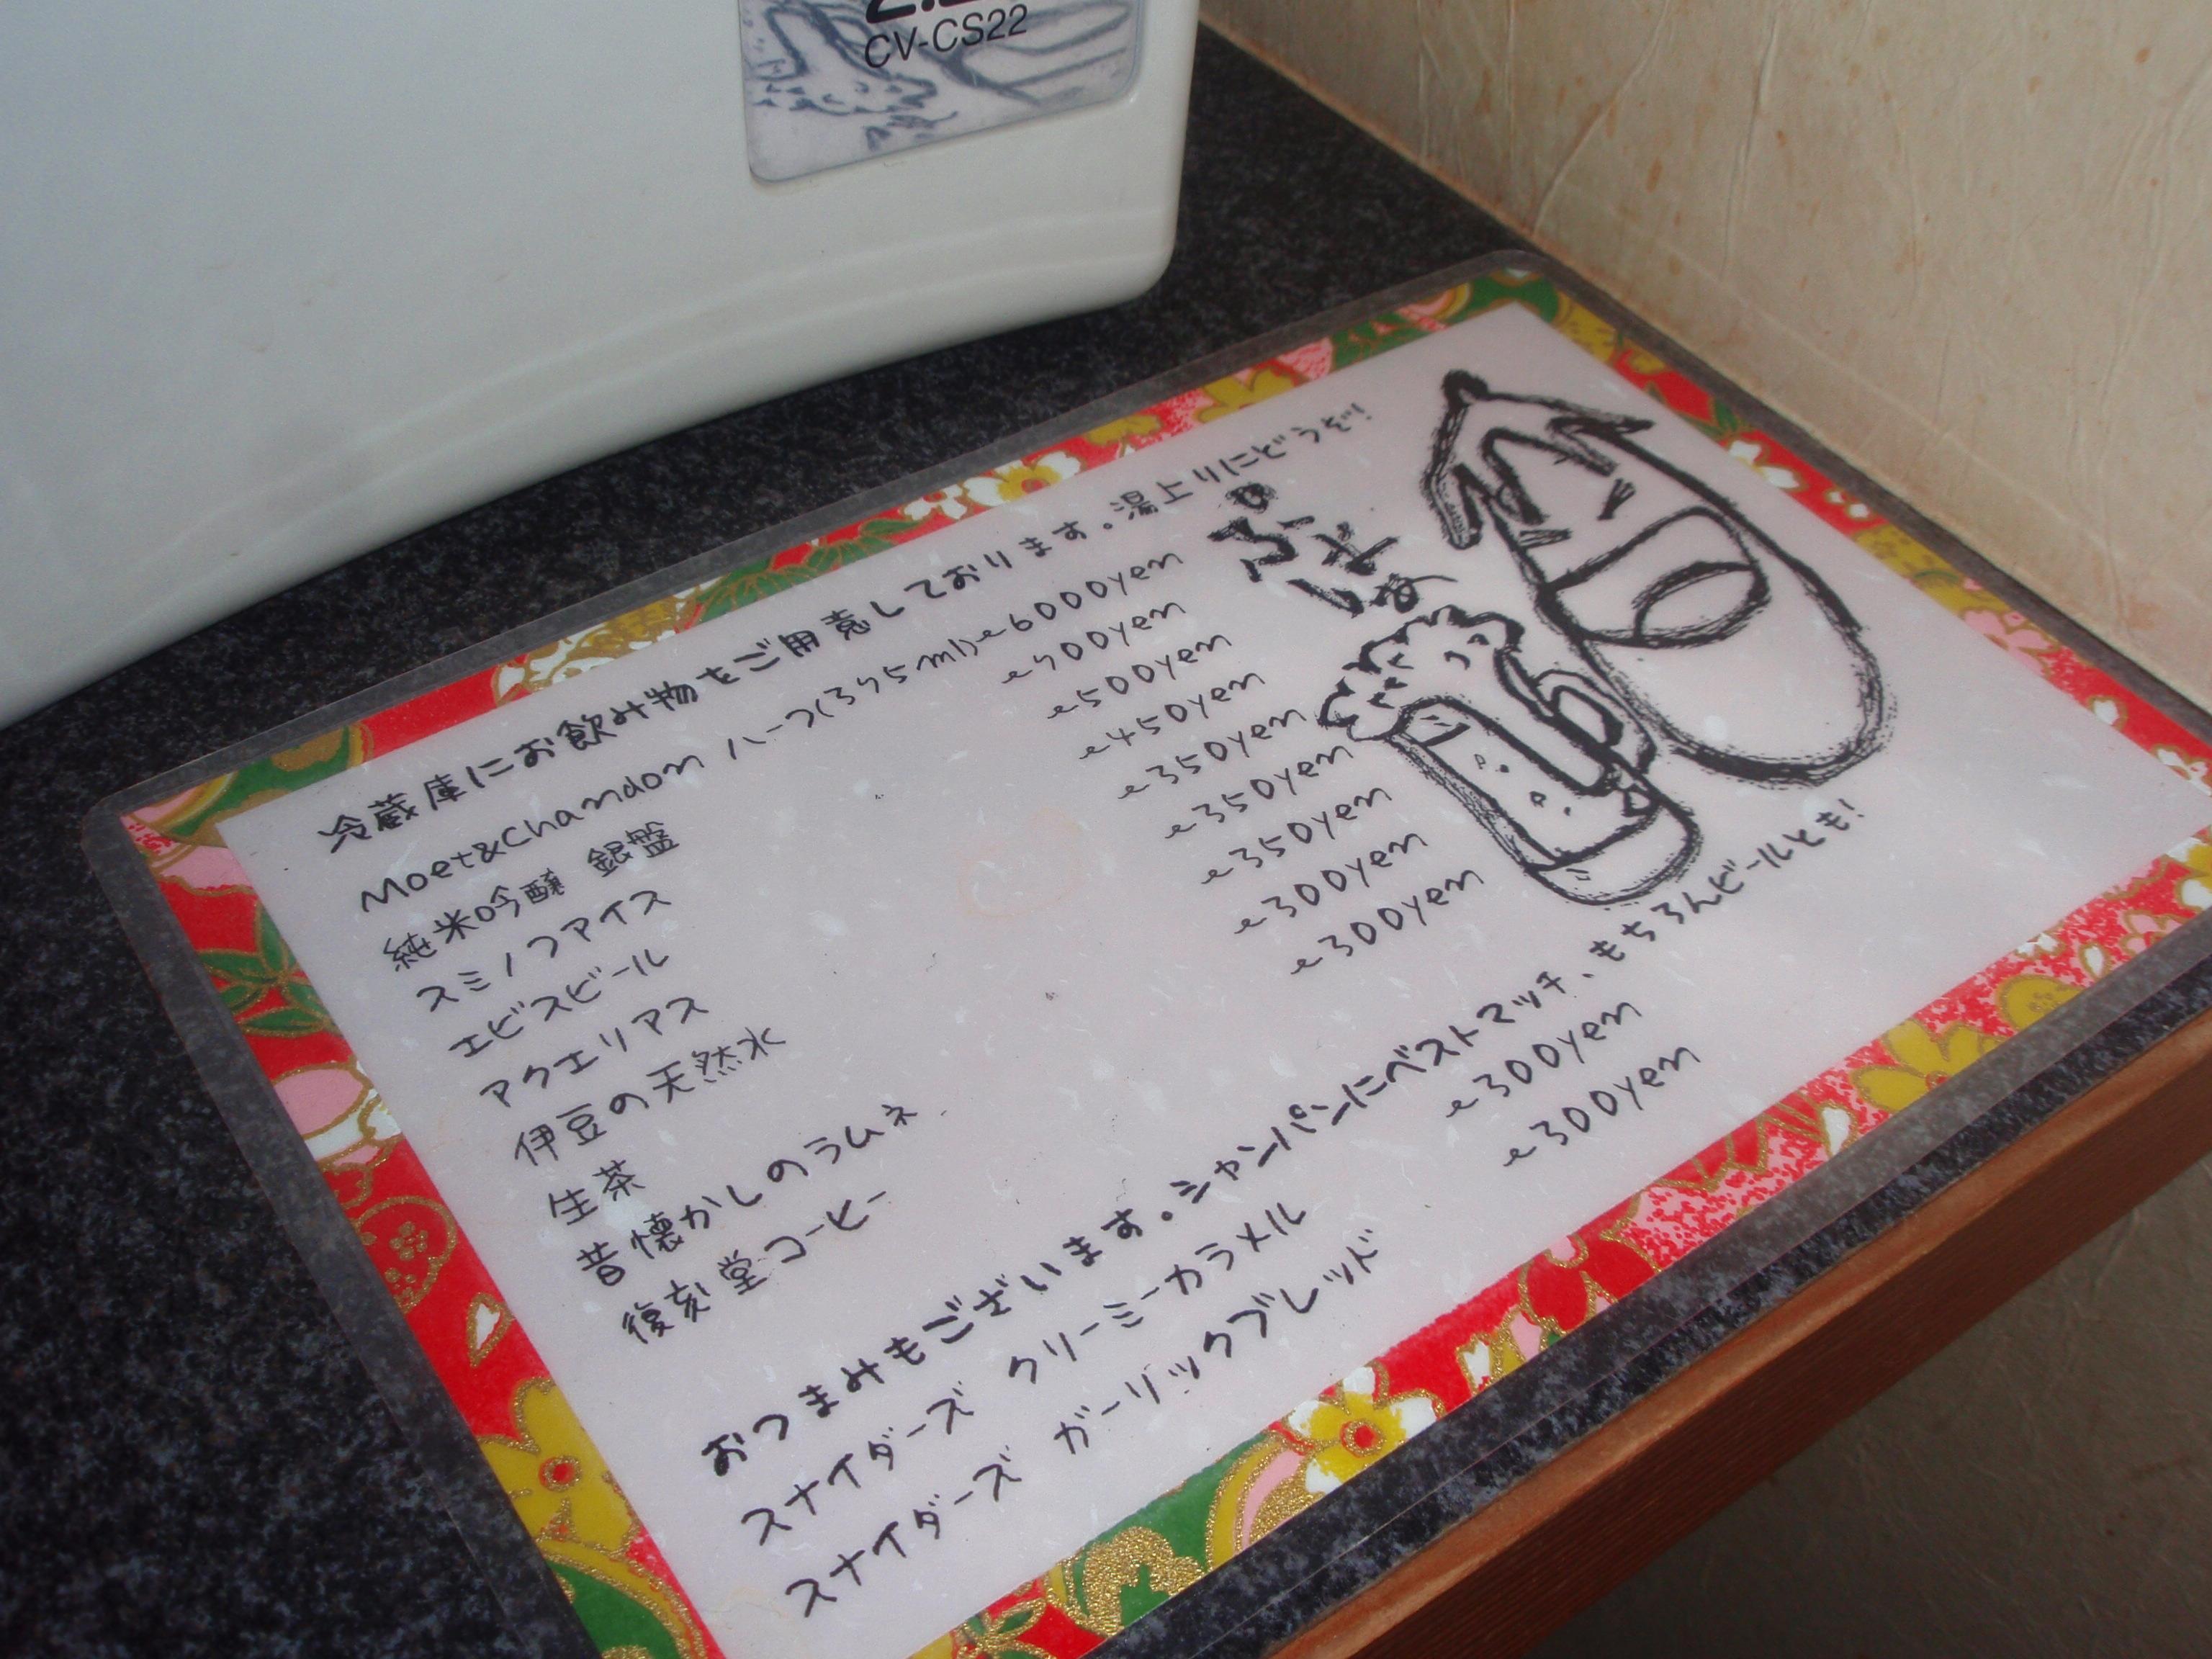 CV-CS22
冷蔵庫にお飲み物をご用意しております。湯上りにどうぞ!
Moet&Chandon ハーフ(375ml)~6000yen
純米吟醸 銀盤 ~700yen
スミノフアイス ~500yen
エビスビール ~450yen
アクエリアス ~350yen
伊豆の天然水 ~350yen
生茶 ~350yen
昔懐かしのラムネ ~300yen
復刻堂コーヒー ~300yen
おつまみもございます。シャンパンにベストマッチ、もちろんビールとも!
スナイダーズ クリーミーカラメル ~300yen
スナイダーズ ガーリックブレッド ~300yen